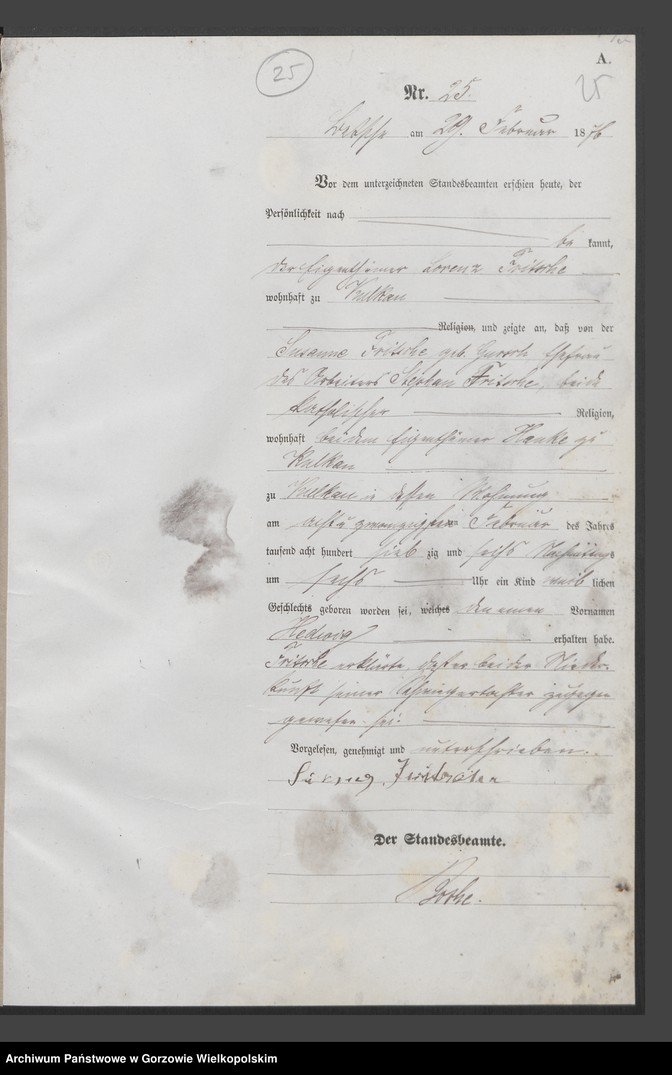 A.
25
Nr. 25.
25
Betsche am 29. Februar 1876
Vor dem unterzeichneten Standesbeamten erschien heute, der
Persönlichkeit nach
be kannt,
der Eigenthümer Lorenz Fritsche
wohnhaft zu Kulkau
Religion, und zeigte an, daß von der
Susanne Fritsche geb. Ehefrau
des Arbeiters Stephan Fritsche, beide
katholischer Religion,
wohnhaft bei dem Eigenthümer Hanke zu
Kulkau
zu Kulkau in dessen Wohnung
am acht u zwanzigsten Februar des Jahres
tausend acht hundert sieb zig und sechs Nachmittags
um sechs Uhr ein Kind weib lichen
Geschlechts geboren worden sei, welches den Vornamen
Hedwig erhalten habe.
Fritsche erklärte, daß er bei der Nieder-
kunft seiner Schwiegertochter zugegen
gewesen sei.
Vorgelesen, genehmigt und unterschrieben.
Der Standesbeamte.
Archiwum Państwowe w Gorzowie Wielkopolskim